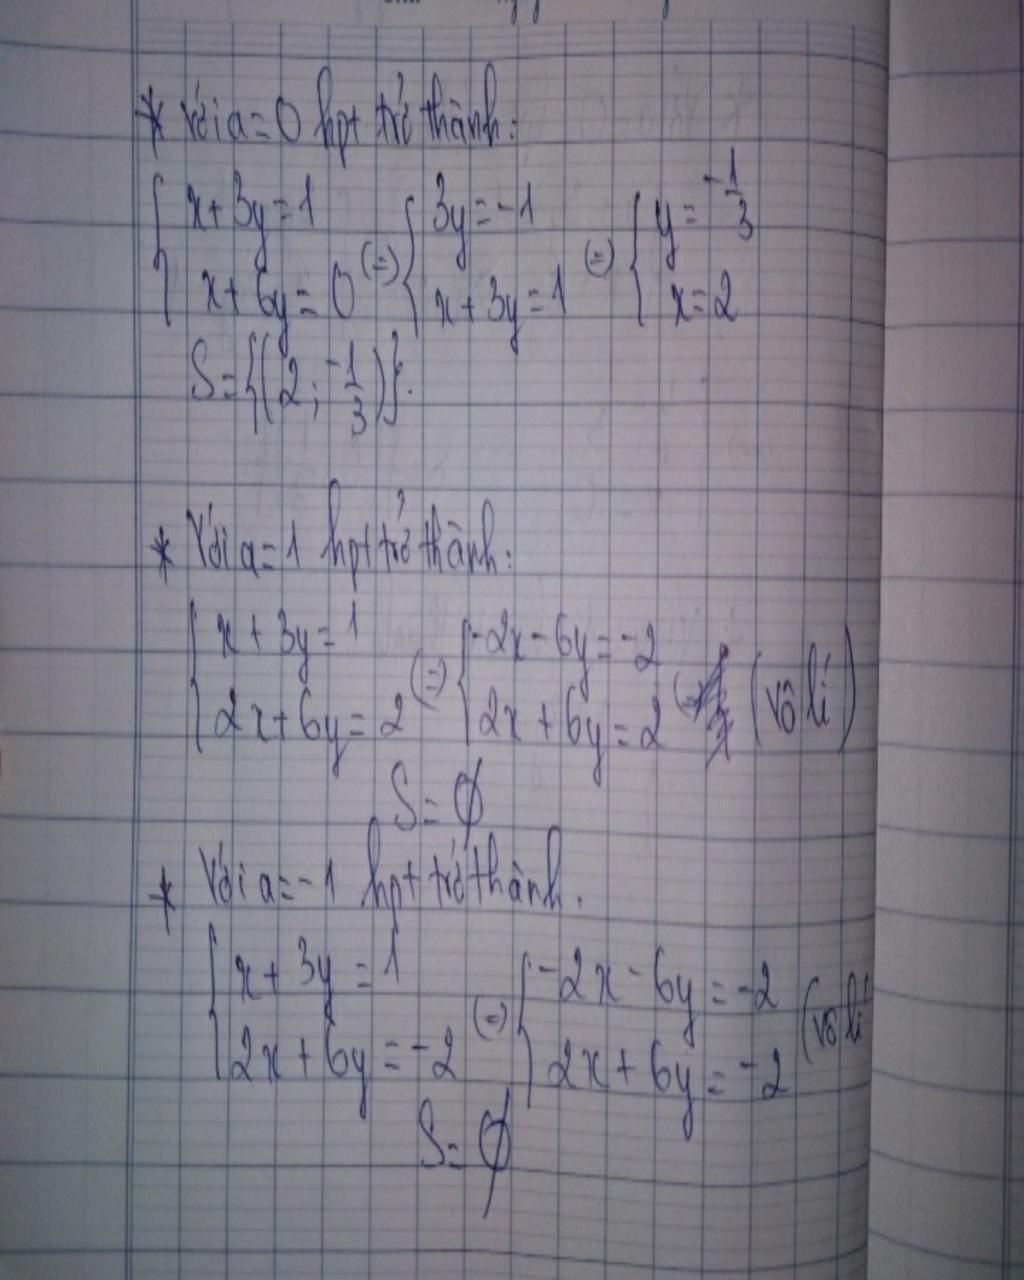 * Với a=0 hpt trở thành:
{ x+3y=1 (=) { 3y=-1 (=) { y=-1/3
x+6y=0 x+3y=1 x=2
S={(2; -1/3)}.
* Với a=1 hpt trở thành:
{ x+3y=1 (=) { -2x-6y=-2
2x+6y=2 2x+6y=2 (vô lí)
S=∅
* Với a=-1 hpt trở thành.
{ x+3y=1 (=) { -2x-6y=-2 (vô lí
2x+6y=-2 2x+6y=-2
S=∅